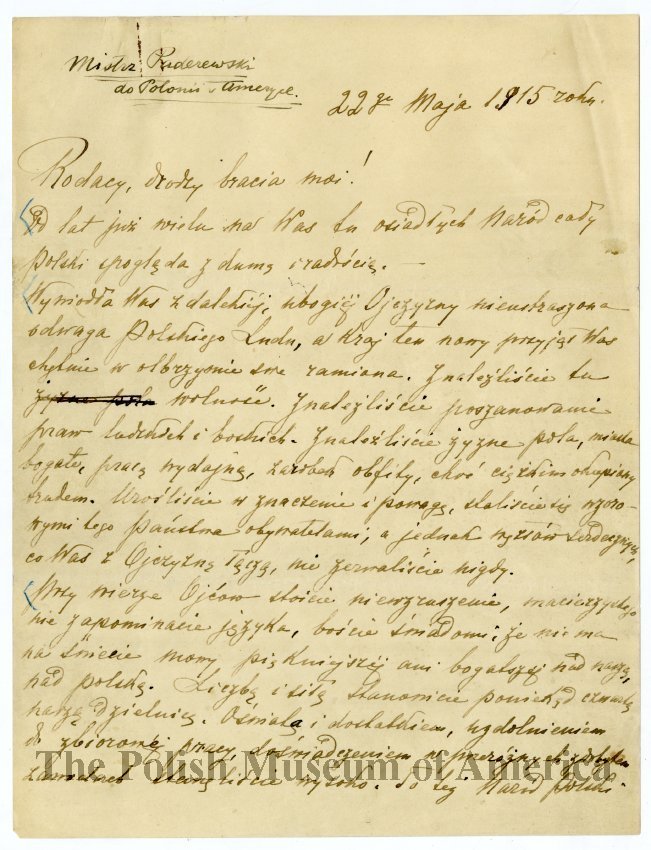 Mistrz Paderewski
do Polonii w Ameryce.
22go Maja 1915 roku.
Rodacy, drodzy bracia moi!
Od lat już wielu na Was tu osiadłych Naród cały
Polski spogląda z dumą i radością.
Wywiodła Was z dalekiéj, ubogiéj Ojczyzny nieustraszona
odwaga Polskiego Ludu, a Kraj ten nowy przyjął Was
chętnie w olbrzymie swe ramiona. Znaleźliście tu
żyzne pola wolność. Znaleźliście poszanowanie
praw ludzkich i boskich. Znaleźliście żyzne pola, miasta
bogate, pracę wydajną, zarobek obfity, choć ciężkim okupiony
trudem. Urośliście w znaczenie i powagę, staliście się wzoro-
wymi tego Państwa obywatelami, a jednak węzłów serdecznych,
co Was z Ojczyzną łączą, nie zerwaliście nigdy.
Przy wierze Ojców stoicie niewzruszenie, macierzystego
nie zapominacie języka, boście świadomi, że nie ma
na świecie mowy piękniejszéj ani bogatszéj nad naszą,
nad polską. Liczbą i siłą stanowicie poniekąd czwartą
naszą dzielnicę. Oświatą i dostatkiem, uzdolnieniem
do zbiorowéj pracy, doświadczeniem
stanęliście wysoko. To też Naród Polski
The Polish Museum of America